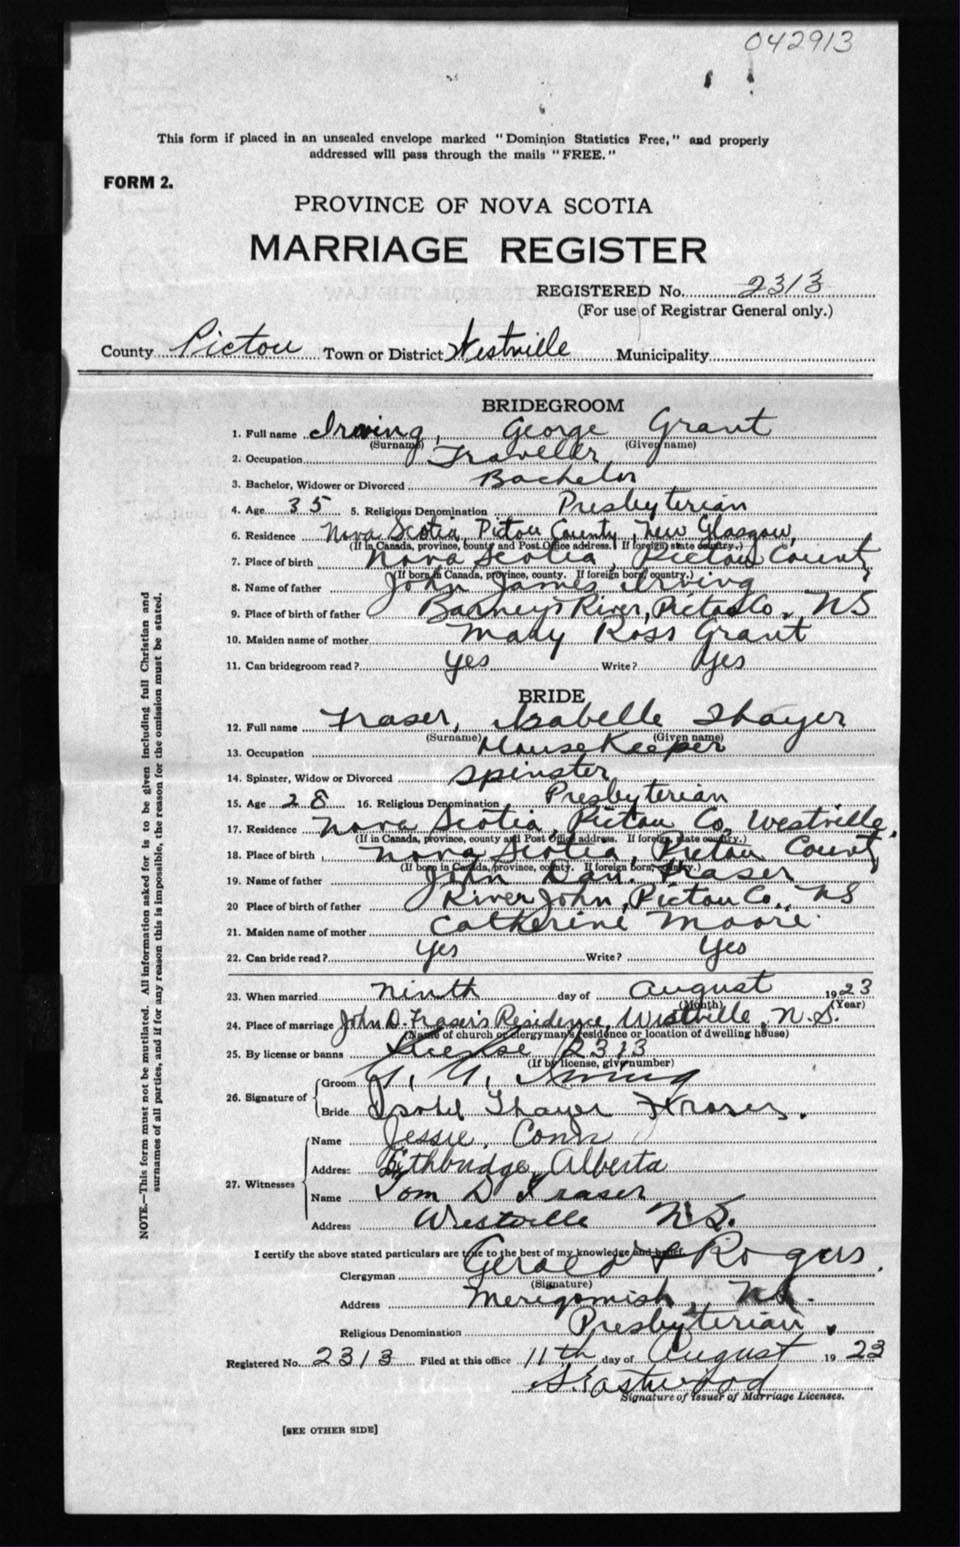 042913
This form if placed in an unsealed envelope marked "Dominion Statistics Free," and properly
addressed will pass through the mails "FREE."
FORM 2.
PROVINCE OF NOVA SCOTIA
MARRIAGE REGISTER
REGISTERED No. 2313
(For use of Registrar General only.)
County Pictou Town or District Westville Municipality
BRIDEGROOM
1. Full name Irving, George Grant
(Surname) (Given name)
2. Occupation Traveller
3. Bachelor, Widower or Divorced Bachelor
4. Age 35 5. Religious Denomination Presbyterian
6. Residence Nova Scotia, Pictou County, New Glasgow,
(If in Canada, province, county and Post Office address. If foreign, state country.)
7. Place of birth Nova Scotia, Pictou County
(If born in Canada, province, county. If foreign born, country.)
8. Name of father John James Irving
9. Place of birth of father Barney's River, Pictou Co., NS
10. Maiden name of mother Mary Ross Grant
11. Can bridegroom read? Yes Write? Yes
BRIDE
12. Full name Fraser, Isabelle Thayer
(Surname) (Given name)
13. Occupation HouseKeeper
14. Spinster, Widow or Divorced Spinster
15. Age 28 16. Religious Denomination Presbyterian
17. Residence Nova Scotia, Pictou Co, Westville,
(If in Canada, province, county and Post Office address. If foreign, state country.)
18. Place of birth Nova Scotia, Pictou County
(If born in Canada, province, county. If foreign born, country.)
19. Name of father John Dan. Fraser
20 Place of birth of father River John, Pictou Co., NS
21. Maiden name of mother Catherine Moore
22. Can bride read? Yes Write? Yes
23. When married ninth day of August 1923
(Month) (Year)
24. Place of marriage John D. Fraser's Residence, Westville, N.S.
(Name of church or clergyman's residence or location of dwelling house)
25. By license or banns License 2313
(If by license, give number)
26. Signature of
Groom G. G. Irving
Bride Isobel Thayer Fraser.
27. Witnesses
Name Jessie Conn
Address Ethbridge, Alberta
Name Tom D Fraser
Address Westville N.S.
I certify the above stated particulars are true to the best of my knowledge and belief.
Clergyman Gerald Rogers.
(Signature)
Address Merigomish, N.S.
Religious Denomination Presbyterian.
Registered No. 2313 Filed at this office 11th day of August 1923
S. Eastwood
Signature of Issuer of Marriage Licenses.
[SEE OTHER SIDE]
NOTE.—This form must not be mutilated. All information asked for is to be given including full Christian and
surnames of all parties, and if for any reason this is impossible, the reason for the omission must be stated.